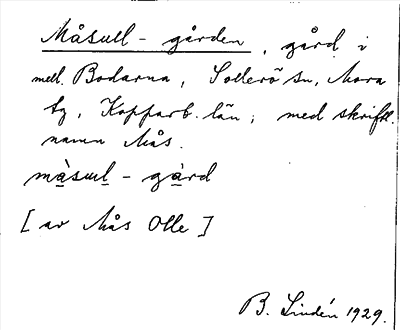 Måsull-gården, gård i
mell. Bodarna, Sollerö sn, Mora
tg, Kopparb. län; med skriftl.
namn Mås.
màsuul-gàrd
[av Mås Olle]
B. Lindén 1929.